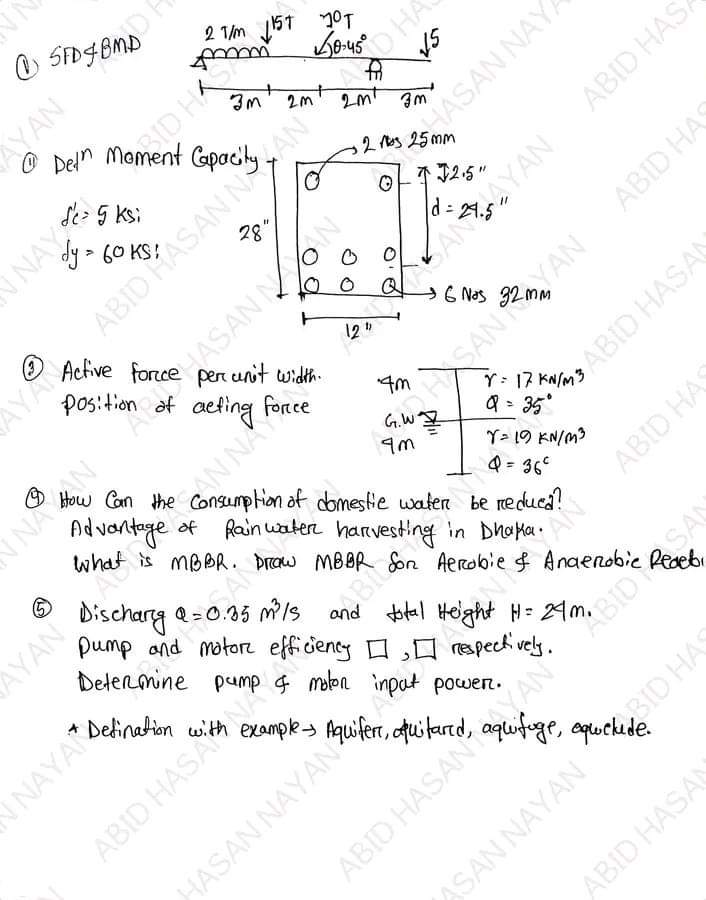 ① SFD & BMD
2 T/m 15T 70T 5
θ=45°
3m 2m 2m 3m
⑪ Detⁿ Moment Capacity
2 Nos 25mm
2.5"
f'c = 5 Ksi
d = 29.5"
fy = 60 KSi
28"
6 Nos 32mm
12"
③ Active force per unit width.
position of acting force
4m γ = 17 KN/m³
φ = 35°
G.W
4m γ = 19 KN/m³
φ = 36°
④ How Can the Consumption of domestic water be reduced?
Advantage of Rain water harvesting in Dhaka.
What is MBBR. Draw MBBR for Aerobic & Anaerobic
⑤ Discharg Q = 0.35 m³/s and total Height H = 24m.
Pump and motor efficiency □, □ respectively.
Determine pump & motor input power.
* Defination with example → Aquifer, aquitard, aquifuge, aquclude.
ABID HASAN NAYAN